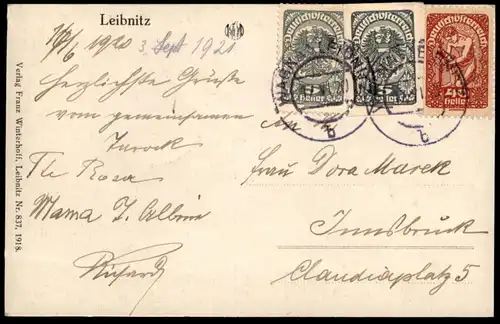 Leibnitz
16/6 1920 3. Sept 1921
Herzlichste Grüsse
vom gemeinsamen
Tarock
Tte Rosa
Mama J. Albine
Richard
Frau Dora Marek
Innsbruck
Claudiaplatz 5
Deutschösterreich
5 Heller
Deutschösterreich
5 Heller
Heller
LEIBNITZ
b
b
Verlag Franz Winterhoff, Leibnitz Nr. 837, 1918.